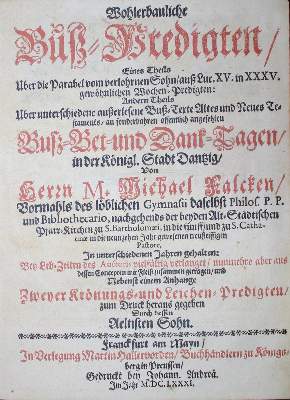 Wohlerbauliche
Buß-Predigten/
Eines Theils
Uber die Parabel vom verlohrnen Sohn/ auß Luc. XV. in XXXV.
gewöhnlichen Wochen-Predigten:
Andern Theils
Uber unterschiedene außerlesene Buß-Texte Altes und Neues Te-
staments, an sonderbahren öffentlich angesetzten
Buß-Bet-und Danck-Tagen/
in der Königl. Stadt Dantzig/
Von
Herrn M. Michael Falcken/
Vormahls des löblichen Gymnasii daselbst Philos. P. P.
und Bibliothecario, nachgehends der beyden Alt-Städtischen
Pfarr-Kirchen zu S. Bartholomæi, in die fünff/ und zu S. Catha-
rinæ in die neunzehen Jahr gewesenen
Pastore,
In unterschiedenen Jahren gehalten:
Bey Leb-Zeiten des Autoris vielfältig verlanget/ nunmehro aber aus
dessen Concepten mit Fleiß zusammen getragen/ und
Nebenst einem Anhange
Zweyer Krönungs-und Leichen-Predigten/
zum Druck heraus gegeben
Durch dessen
Aeltisten Sohn.
Franckfurt am Mayn/
In Verlegung Martin Hallervorden/ Buchhändlern zu Königs-
berg in Preussen/
Gedruckt bey Johann Andreä.
Im Jahr M.DC.LXXXI.